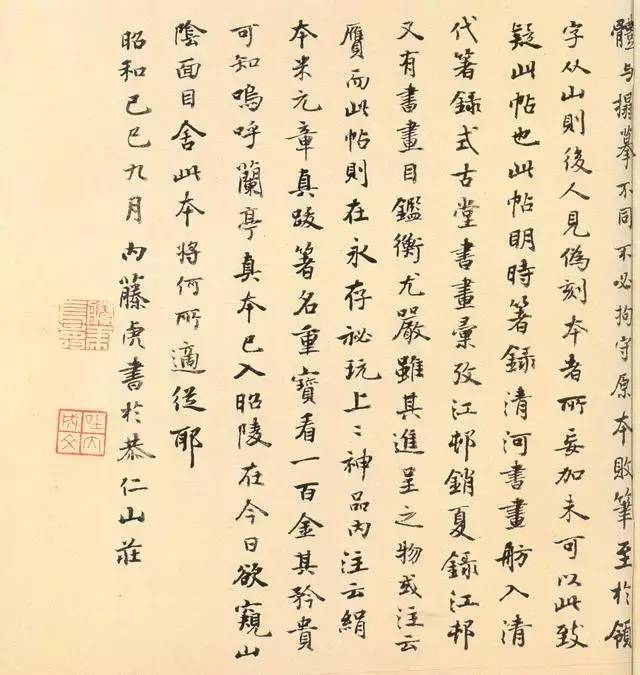 體与搨摹不同不必拘守原本敗筆至於領
字从山則後人見偽刻本者所妄加未可以此致
疑此帖也此帖明時箸錄清河書畫舫入清
代箸錄式古堂書畫彙攷江邨銷夏錄江邨
又有書畫目鑑衡尤嚴雖其進呈之物或注云
贋而此帖則在永存祕玩上〻神品內注云絹
本米元章真跋箸名重寶看一百金其矜貴
可知嗚呼蘭亭真本已入昭陵在今日欲窺山
陰面目舍此本將何所適從耶
昭和己巳九月內藤虎書於恭仁山莊